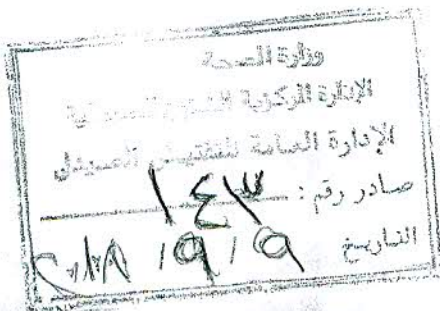 وزارة الصحة
الإدارة المركزية للشئون الصيدلية
الإدارة العامة للتفتيش الصيدلى
صادر رقم : ١٤٣
التاريخ ٩ / ٩ / ٢٠١٨